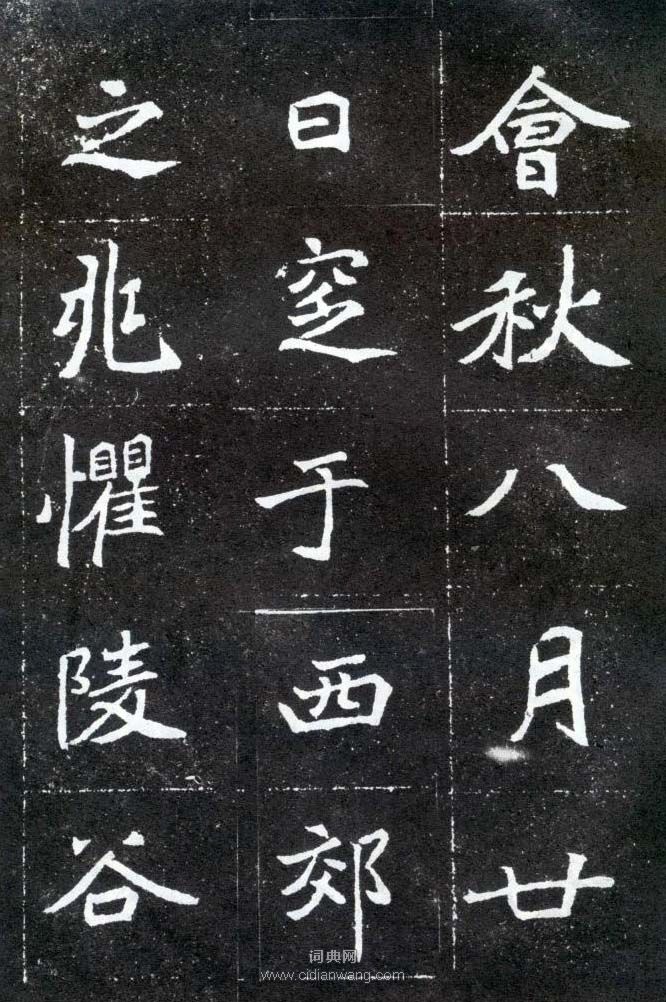 會秋八月廿
日窆于西郊
之兆懼陵谷
词典网
www.cidianwang.com